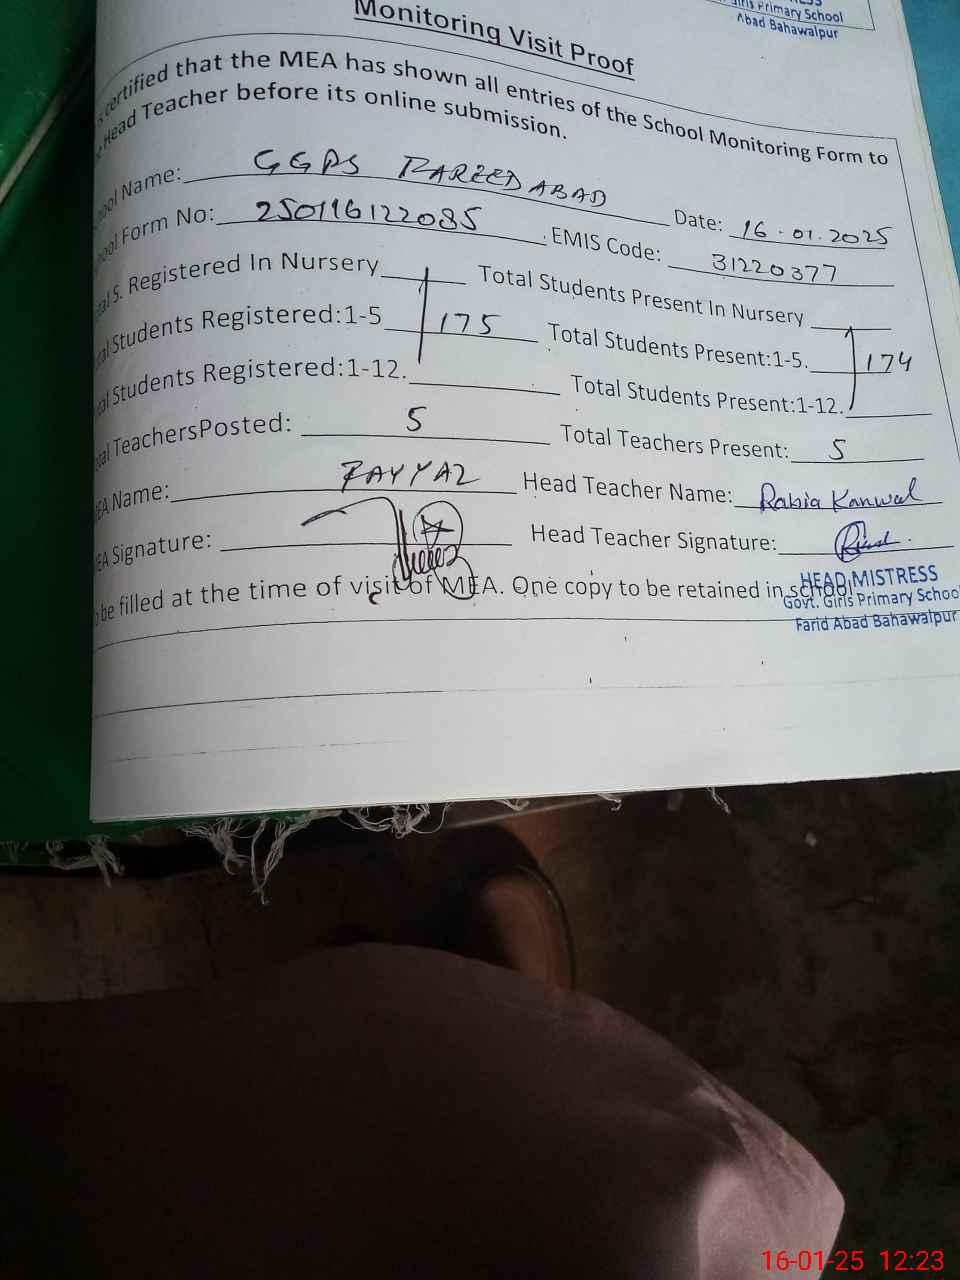 Girls Primary School
Abad Bahawalpur
Monitoring Visit Proof
certified that the MEA has shown all entries of the School Monitoring Form to
Head Teacher before its online submission.
School Name: GGPS FAREED ABAD Date: 16-01.2025
School Form No: 250116122085 EMIS Code: 31220377
Total S. Registered In Nursery Total Students Present In Nursery
Total Students Registered:1-5 175 Total Students Present:1-5. 174
Total Students Registered:1-12. Total Students Present:1-12.
Total TeachersPosted: 5 Total Teachers Present: 5
MEA Name: FAYYAZ Head Teacher Name: Rabia Kanwal
MEA Signature: Head Teacher Signature:
be filled at the time of visit of MEA. One copy to be retained in school.
HEAD MISTRESS
Govt. Girls Primary School
Farid Abad Bahawalpur
16-01-25 12:23